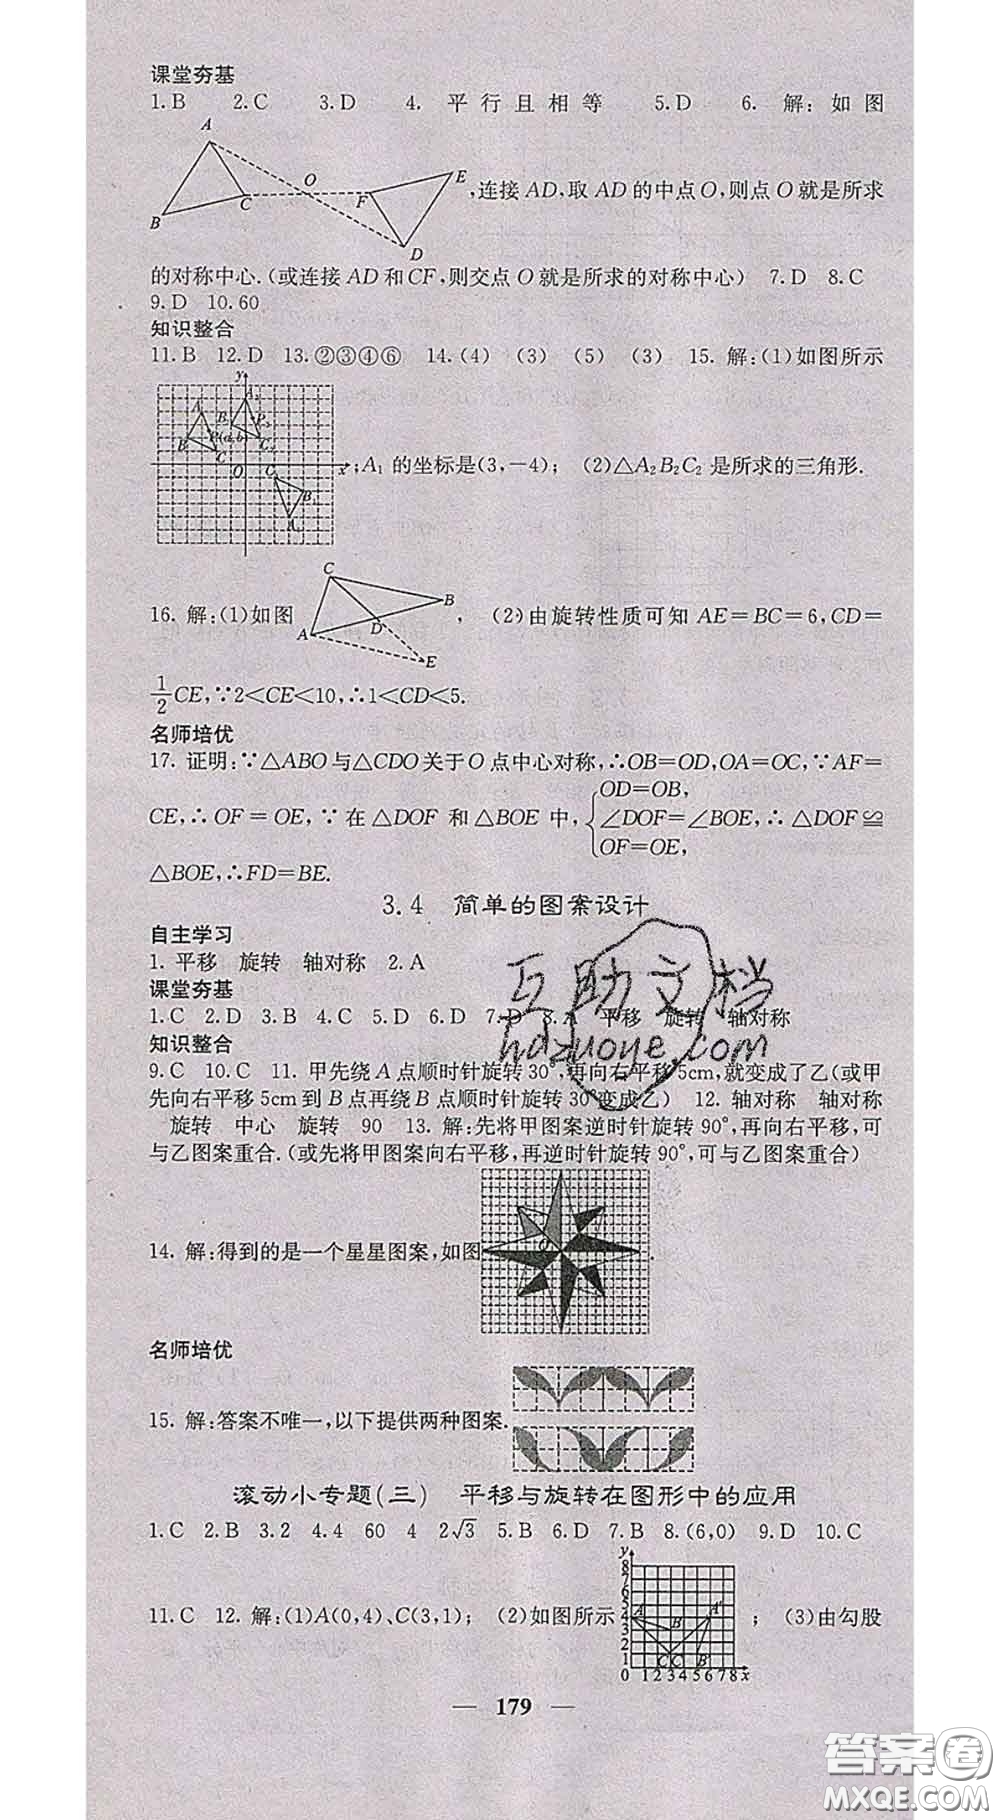 课堂夯基
1.B 2.C 3.D 4. 平行且相等 5.D 6. 解:如图
A
O
E
C
F
B
D
,连接 AD,取 AD 的中点 O,则点 O 就是所求
的对称中心.(或连接 AD 和 CF,则交点 O 就是所求的对称中心) 7.D 8.C
9.D 10.60
知识整合
11.B 12.D 13.②③④⑥ 14.(4) (3) (5) (3) 15. 解:(1)如图所示
y
P(a,b)
O
x
;A₁ 的坐标是(3,-4); (2)△A₂B₂C₂ 是所求的三角形.
C
B
D
A
E
16. 解:(1)如图 , (2)由旋转性质可知 AE=BC=6,CD=
1/2 CE,∵2<CE<10,∴1<CD<5.
名师培优
17. 证明:∵△ABO与△CDO关于O点中心对称,∴OB=OD,OA=OC,∵AF=
CE,∴OF=OE,∵在△DOF 和△BOE 中,{OD=OB, ∠DOF=∠BOE, OF=OE, ∴△DOF≌
△BOE,∴FD=BE.
3.4 简单的图案设计
自主学习
1. 平移 旋转 轴对称 2.A
课堂夯基
1.C 2.D 3.B 4.C 5.D 6.D 7.D 8.A 平移 旋转 轴对称
知识整合
9.C 10.C 11. 甲先绕 A 点顺时针旋转 30°,再向右平移 5cm,就变成了乙(或甲
先向右平移 5cm 到 B 点再绕 B 点顺时针旋转 30°变成乙) 12. 轴对称 轴对称
旋转 中心 旋转 90 13. 解:先将甲图案逆时针旋转 90°,再向右平移,可
与乙图案重合.(或先将甲图案向右平移,再逆时针旋转 90°,可与乙图案重合)
14. 解:得到的是一个星星图案,如图 .
名师培优
15. 解:答案不唯一,以下提供两种图案.
滚动小专题(三) 平移与旋转在图形中的应用
1.C 2.B 3.2 4.4 60 4 2√3 5.B 6.D 7.B 8.(6,0) 9.D 10.C
11.C 12. 解:(1)A(0,4)、C(3,1); (2)如图所示 ; (3)由勾股
y
8
7
6
5
4
3
2
1
0 1 2 3 4 5 6 7 8 x
— 179 —
互助文档
hdzuoye.com
答案圈
MXQE.COM